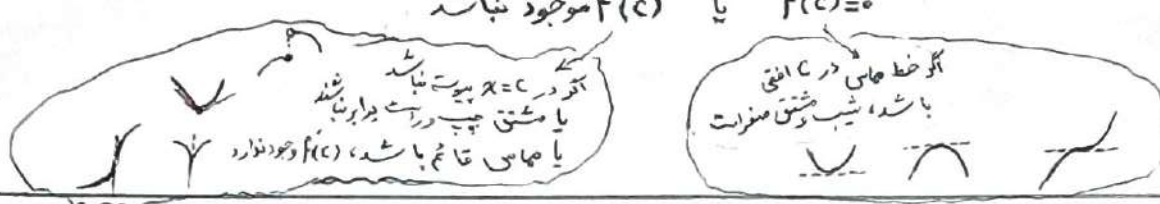 f(c)=0 یا f(c) موجود نباشد
اگر خط مماس در c افقی
باشد، شیب و مشتق صفر است
اگر در x=c پیوسته نباشد
یا مشتق چپ و راست برابر نباشند
یا مماس قائم باشد، f′(c) وجود ندارد